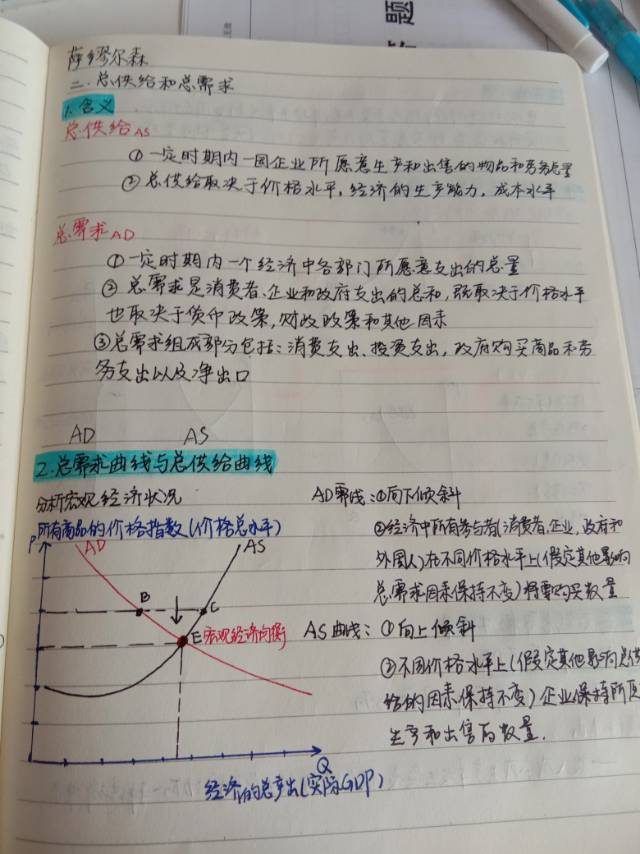 题
萨缪尔森
二.总供给和总需求
1.含义
总供给AS
①一定时期内一国企业所愿意生产和出售的物品和劳务总量
②总供给取决于价格水平,经济的生产能力,成本水平
总需求AD
①一定时期内一个经济中各部门所愿意支出的总量
②总需求是消费者、企业和政府支出的总和,既取决于价格水平
也取决于货币政策,财政政策和其他因素
③总需求组成部分包括:消费支出、投资支出,政府购买商品和劳
务支出以及净出口
AD AS
2.总需求曲线与总供给曲线
分析宏观经济状况
P所有商品的价格指数(价格总水平)
AD
AS
B
C
E宏观经济均衡
Q
经济的总产出(实际GDP)
AD需线:①向下倾斜
②经济中所有参与者(消费者,企业,政府和
外国人)在不同价格水平上(假定其他影响
总需求因素保持不变)将要购买数量
AS曲线:①向上倾斜
②不同价格水平上(假定其他影响总供
给的因素保持不变)企业保持所愿
生产和出售的数量.